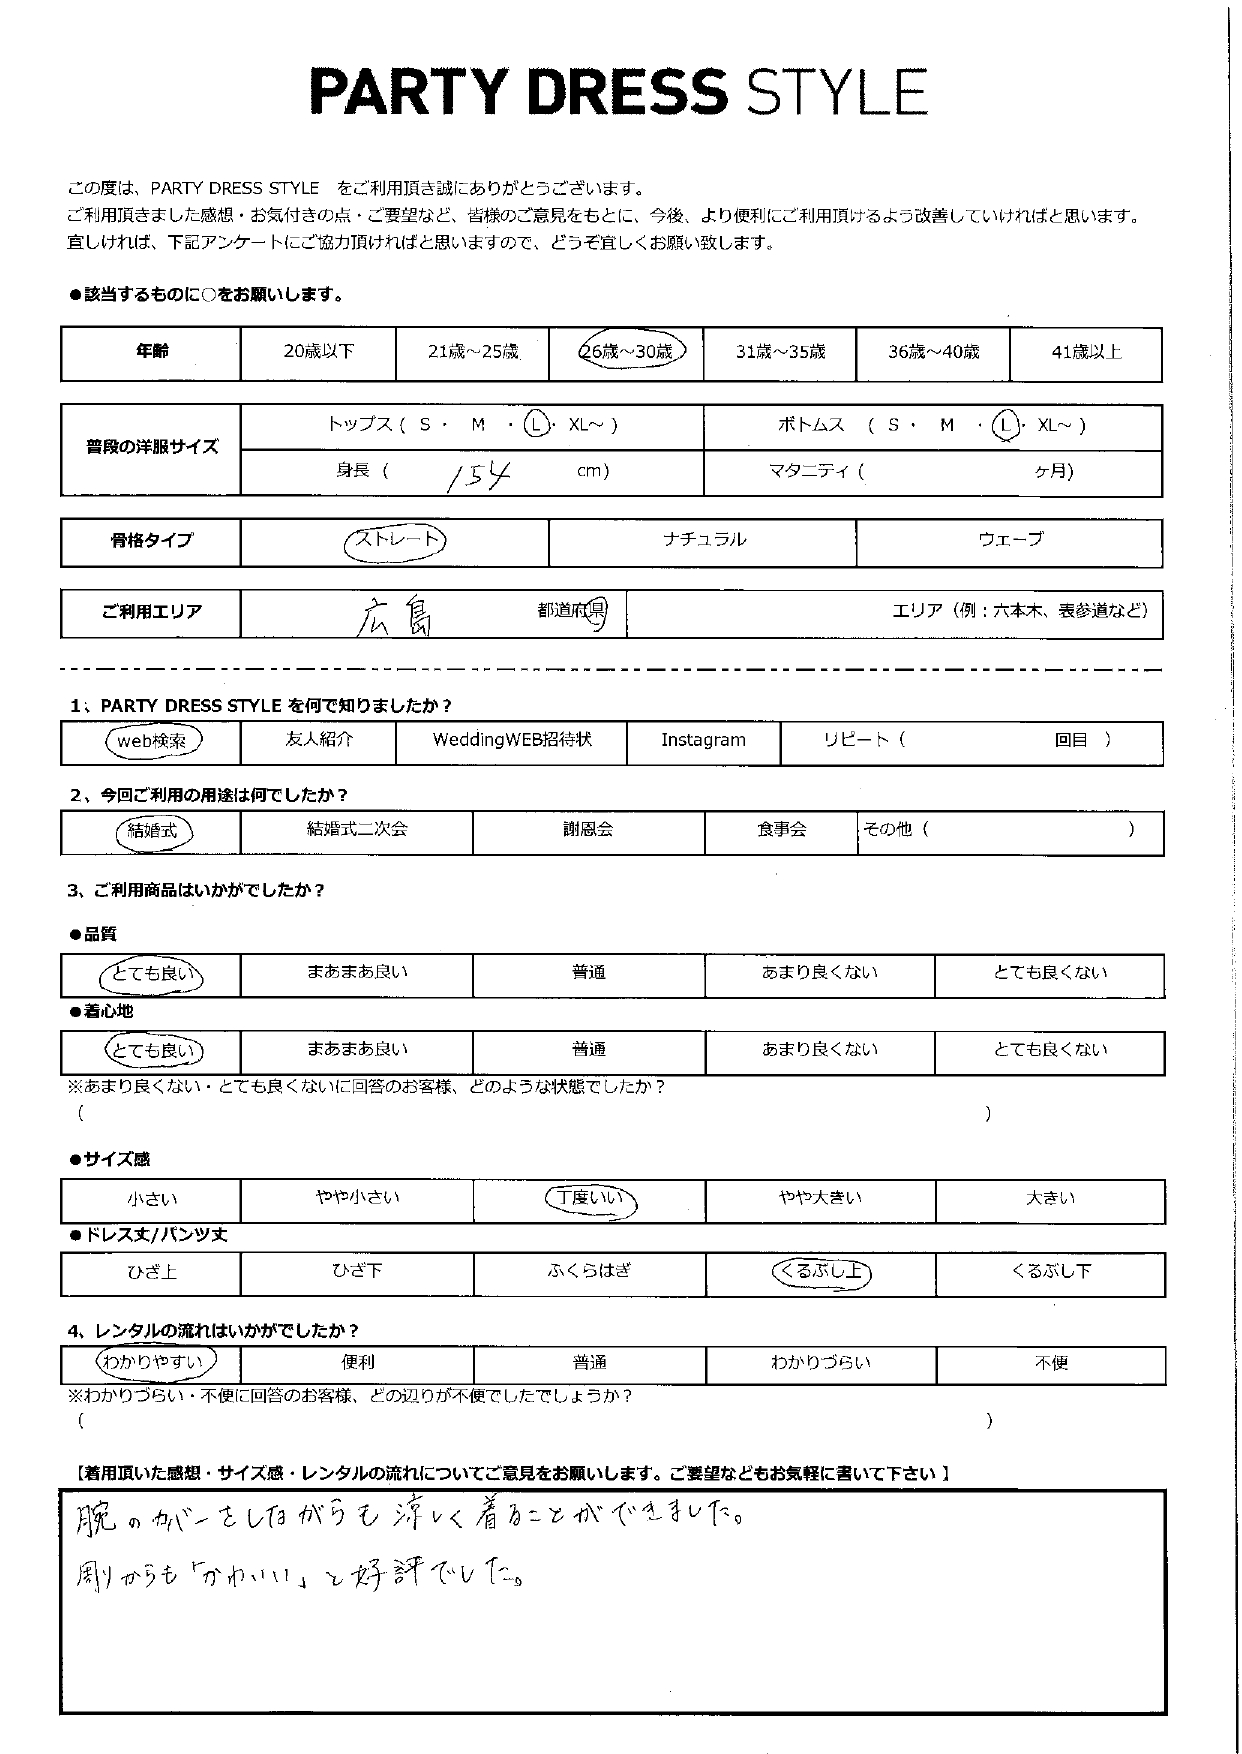 PARTY DRESS STYLE
この度は、PARTY DRESS STYLE をご利用頂き誠にありがとうございます。
ご利用頂きました感想・お気付きの点・ご要望など、皆様のご意見をもとに、今後、より便利にご利用頂けるよう改善していければと思います。
宜しければ、下記アンケートにご協力頂ければと思いますので、どうぞ宜しくお願い致します。
●該当するものに○をお願いします。
年齢 20歳以下 21歳～25歳 26歳～30歳 31歳～35歳 36歳～40歳 41歳以上
普段の洋服サイズ トップス ( S ・ M ・ L ・ XL～ ) ボトムス ( S ・ M ・ L ・ XL～ )
身長 ( 154 cm) マタニティ ( ヶ月)
骨格タイプ ストレート ナチュラル ウェーブ
ご利用エリア 広島 都道府県 エリア（例：六本木、表参道など）
1、PARTY DRESS STYLE を何で知りましたか？
web検索 友人紹介 WeddingWEB招待状 Instagram リピート ( 回目 )
2、今回ご利用の用途は何でしたか？
結婚式 結婚式二次会 謝恩会 食事会 その他 ( )
3、ご利用商品はいかがでしたか？
●品質
とても良い まあまあ良い 普通 あまり良くない とても良くない
●着心地
とても良い まあまあ良い 普通 あまり良くない とても良くない
※あまり良くない・とても良くないに回答のお客様、どのような状態でしたか？
( )
●サイズ感
小さい やや小さい 丁度いい やや大きい 大きい
●ドレス丈/パンツ丈
ひざ上 ひざ下 ふくらはぎ くるぶし上 くるぶし下
4、レンタルの流れはいかがでしたか？
わかりやすい 便利 普通 わかりづらい 不便
※わかりづらい・不便に回答のお客様、どの辺りが不便でしたでしょうか？
( )
【着用頂いた感想・サイズ感・レンタルの流れについてご意見をお願いします。ご要望などもお気軽に書いて下さい 】
腕のカバーをしながらも涼しく着ることができました。
周りからも「かわいい」と好評でした。